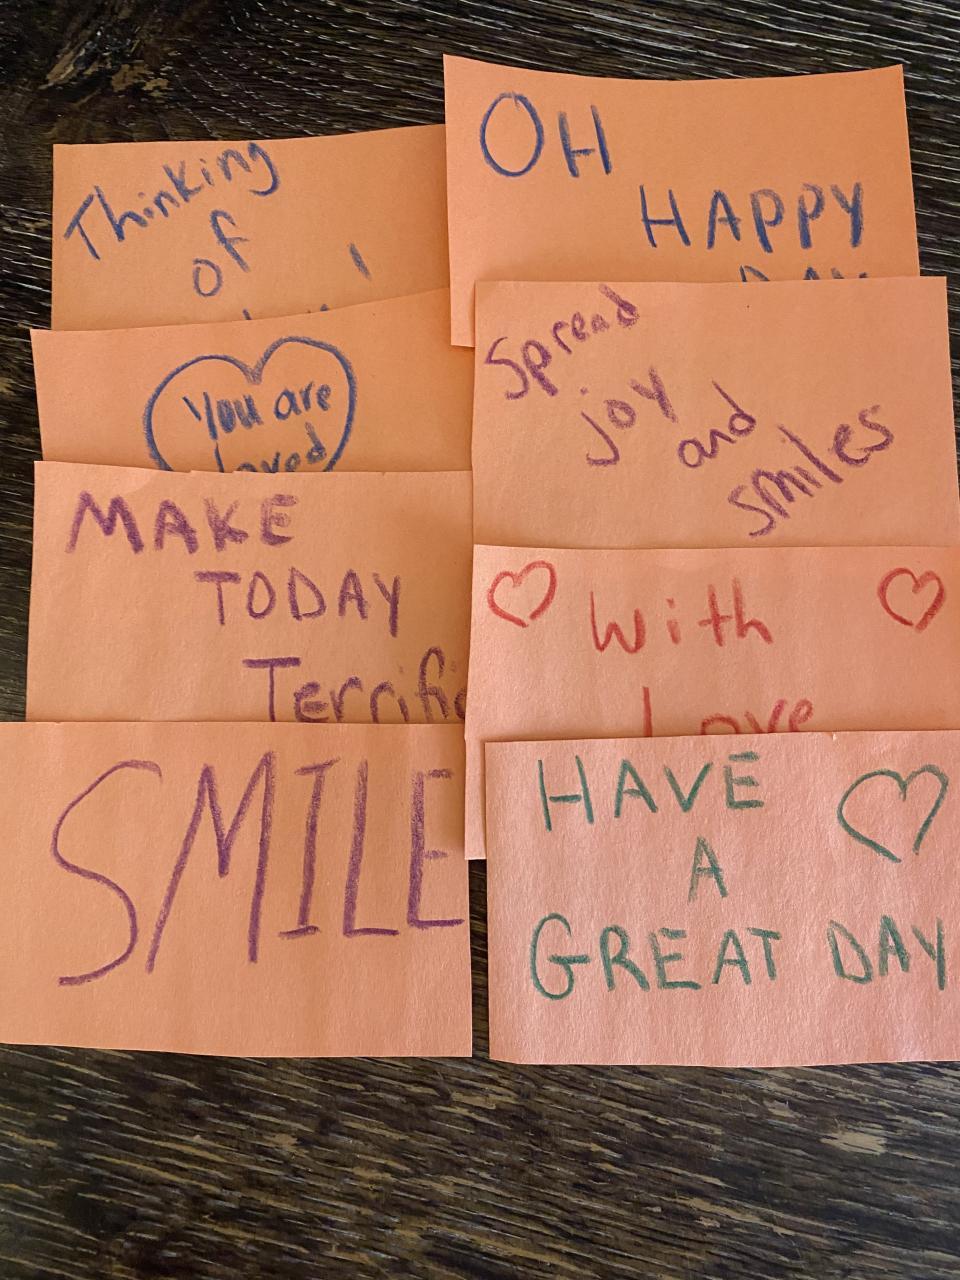 Thinking
of
OH
HAPPY
DAY
You are
loved
Spread
joy
and
smiles
MAKE
TODAY
Terrific
With
Love
SMILE
HAVE
A
GREAT DAY